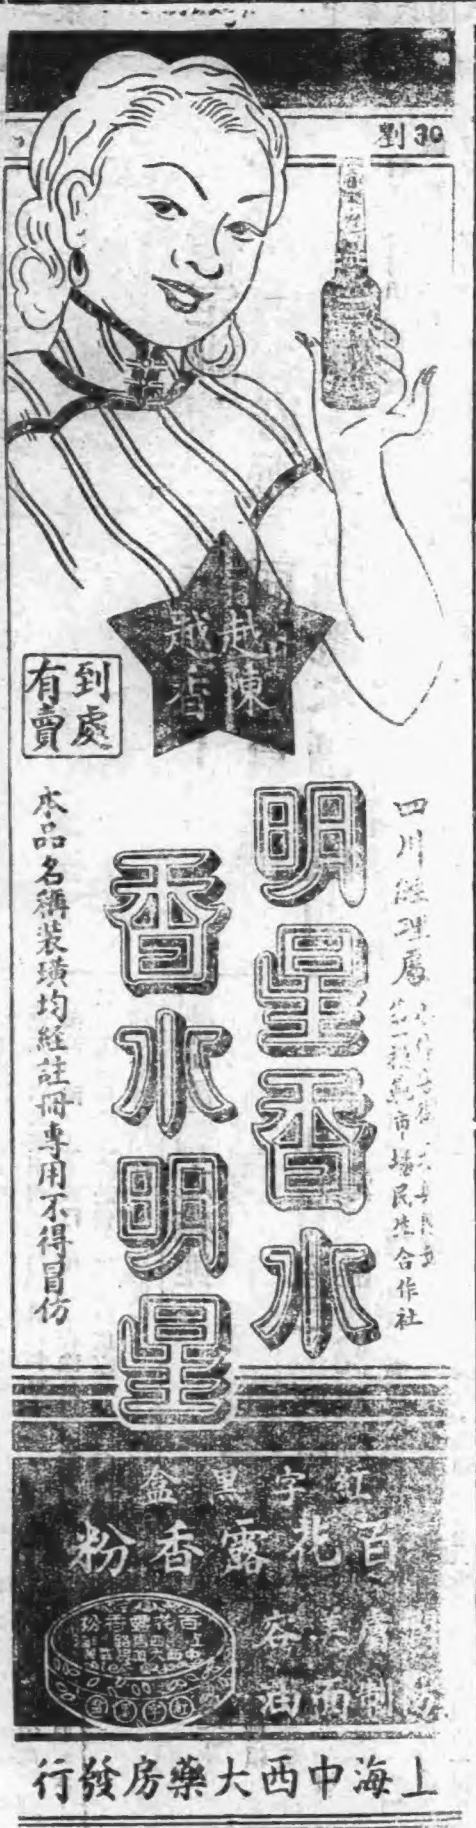 劉 30
越陳
越香
到處
有賣
四川經理處
市場民生合作社
明星香水
香水明星
本品名稱裝璜均經註冊專用不得冒仿
紅字黑盒
百花露香粉
膚美容
制面油
上海中西大藥房發行